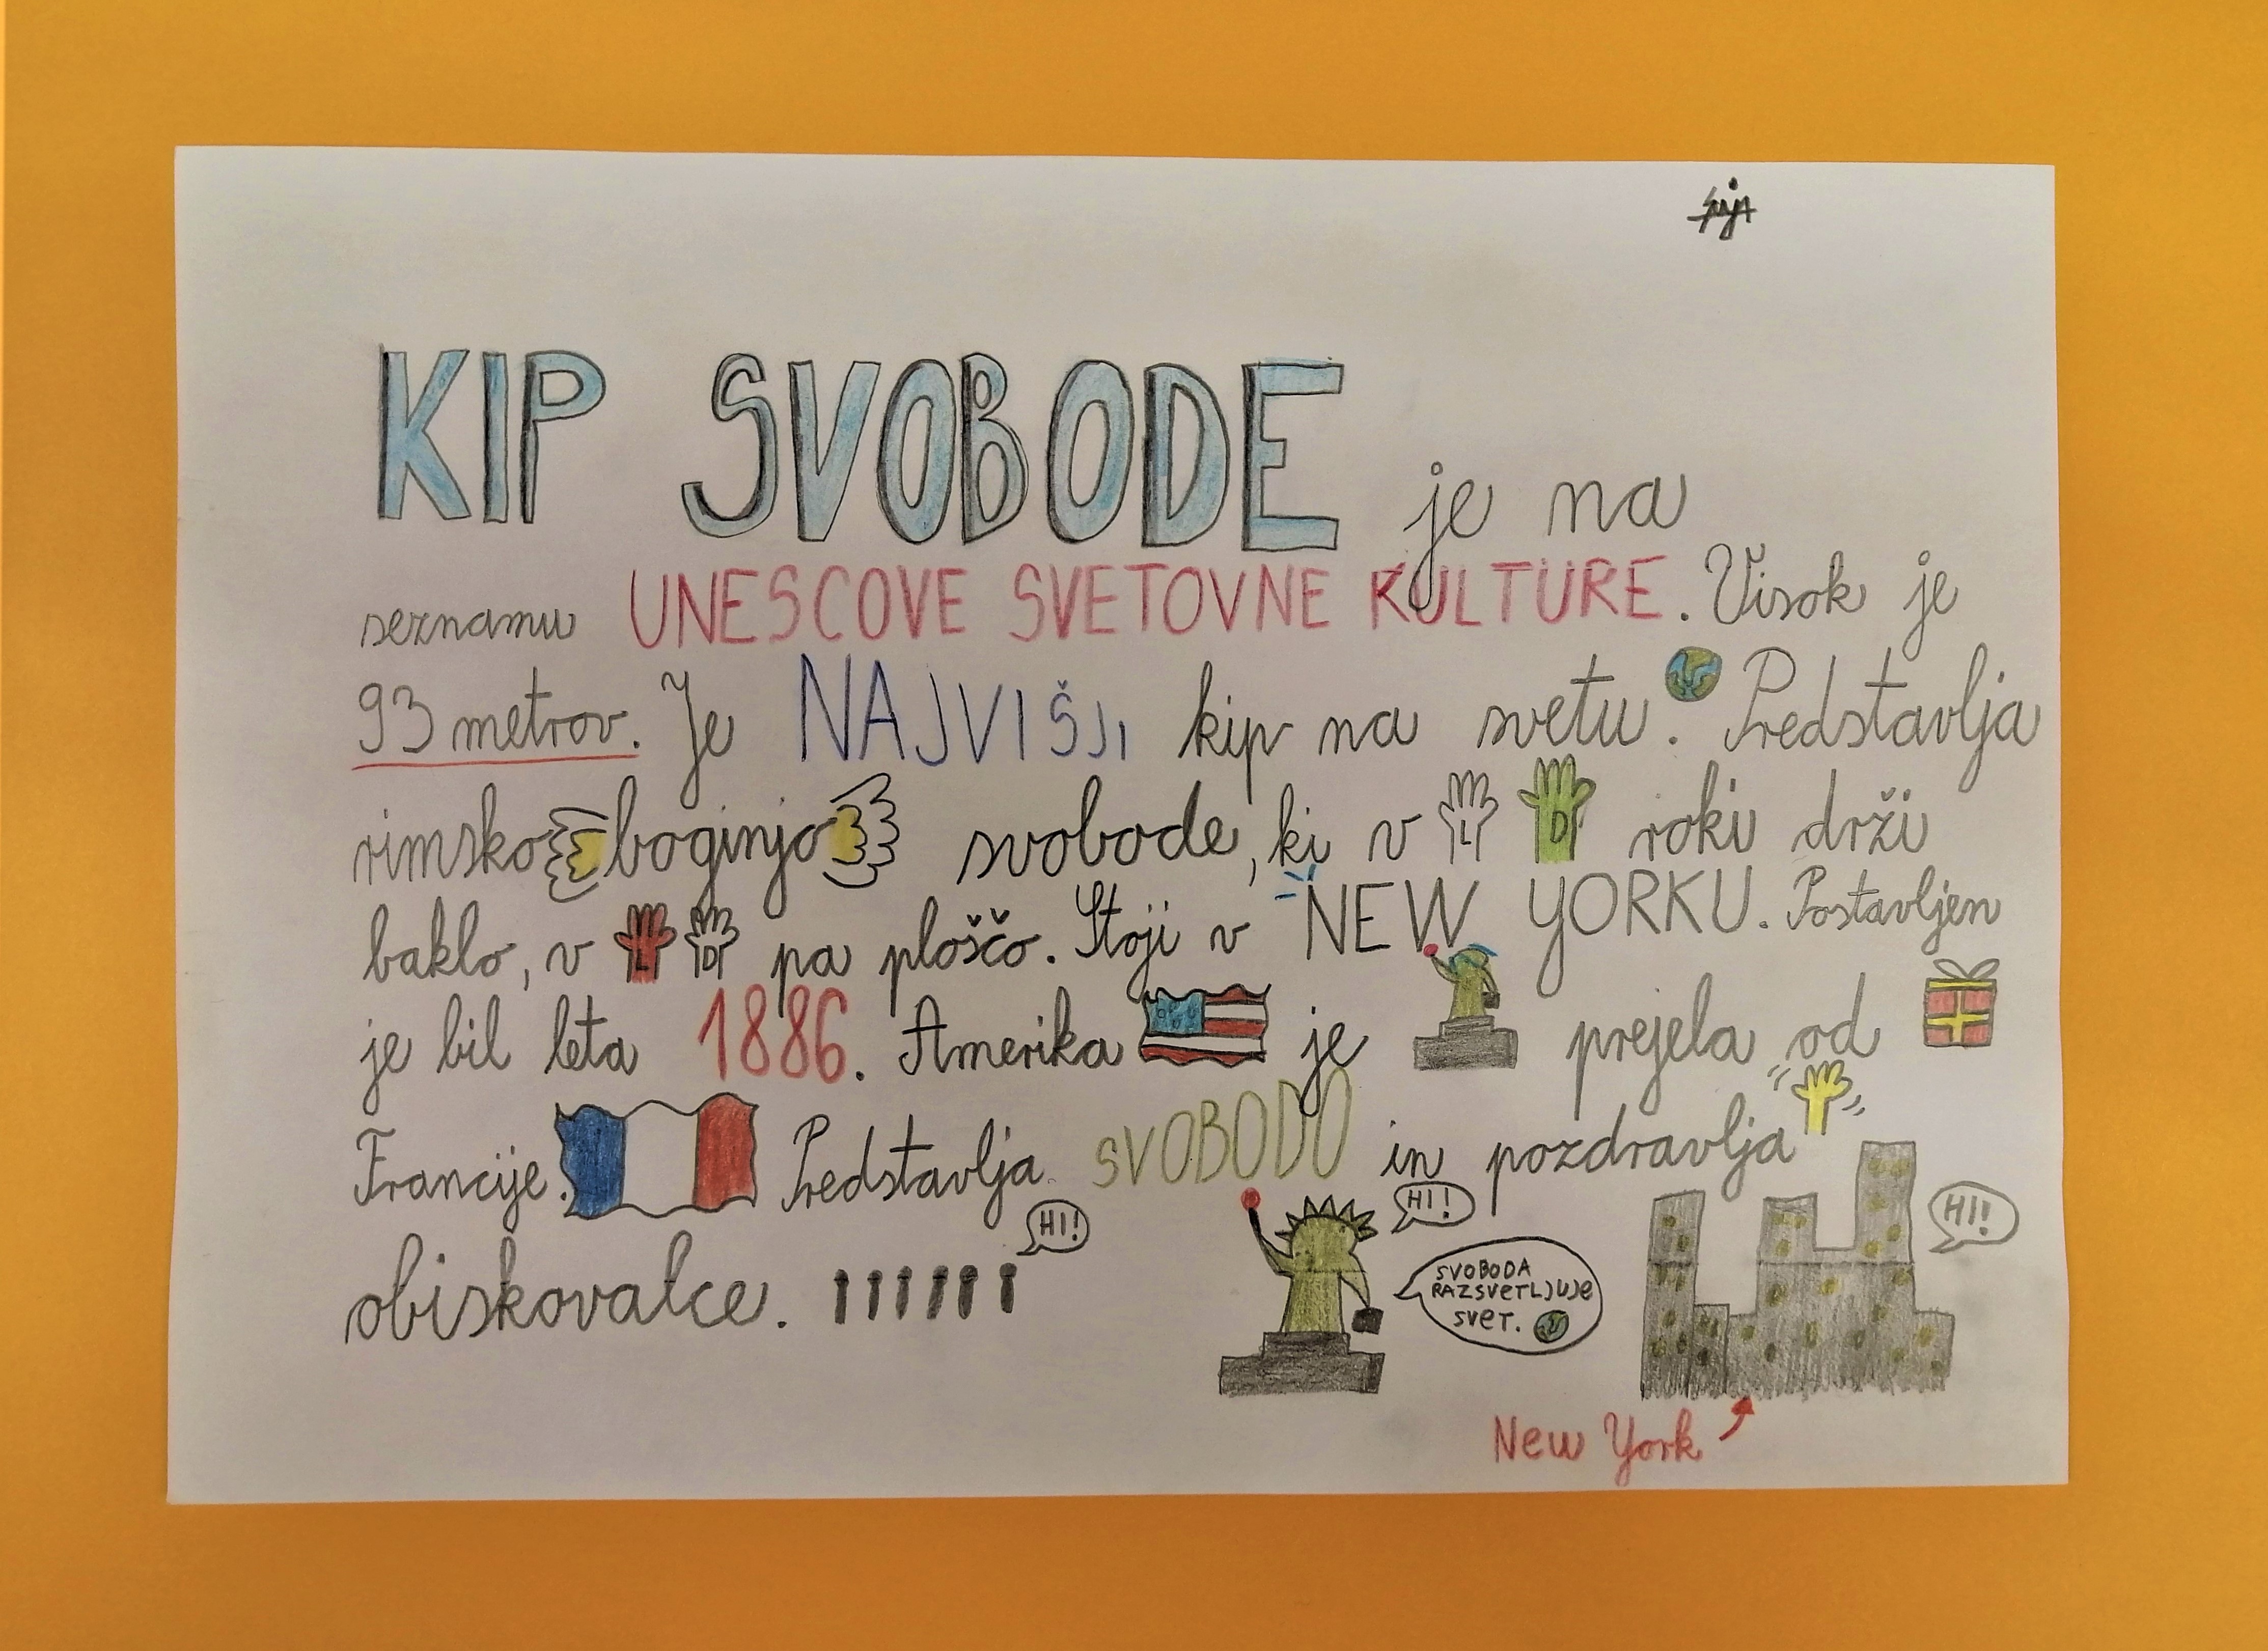 KIP SVOBODE je na
seznamu UNESCOVE SVETOVNE KULTURE. Visok je
93 metrov. Je NAJVIŠJI kip na svetu. Predstavlja
rimsko boginjo svobode, ki v L D roki drži
baklo, v L D pa ploščo. Stoji v NEW YORKU. Postavljen
je bil leta 1886. Amerika je prejela od
Francije. Predstavlja SVOBODO in pozdravlja
obiskovalce.
HI!
HI!
HI!
SVOBODA
RAZSVETLJUJE
SVET.
New York